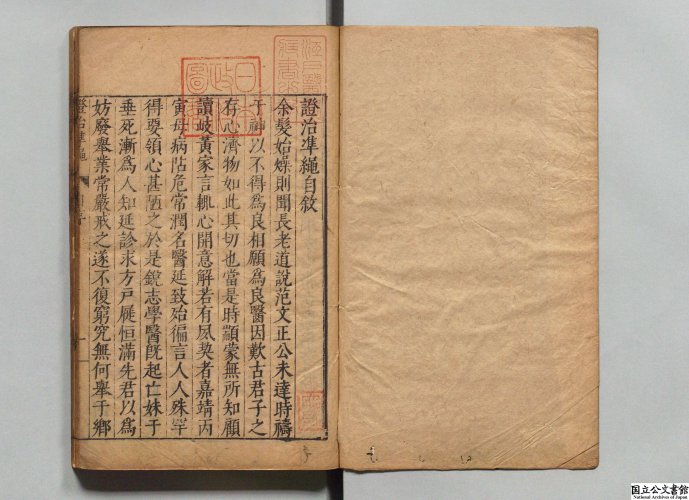 證治準繩自敘
余髮始燥則聞長老道說范文正公未達時禱
于神以不得為良相願為良醫因歎古君子之
存心濟物如此其切也當是時顓蒙無所知顧
讀岐黃家言輒心開意解若有夙契者嘉靖丙
寅母病阽危常潤名醫延致殆徧言人人殊罕
得要領心甚陋之於是銳志學醫既起亡妹于
垂死漸為人知延診求方戶屨恒滿先君以為
妨廢舉業常嚴戒之遂不復窮究無何舉于鄉
證治準繩
日本
政府
圖書
国立公文書館
National Archives of Japan